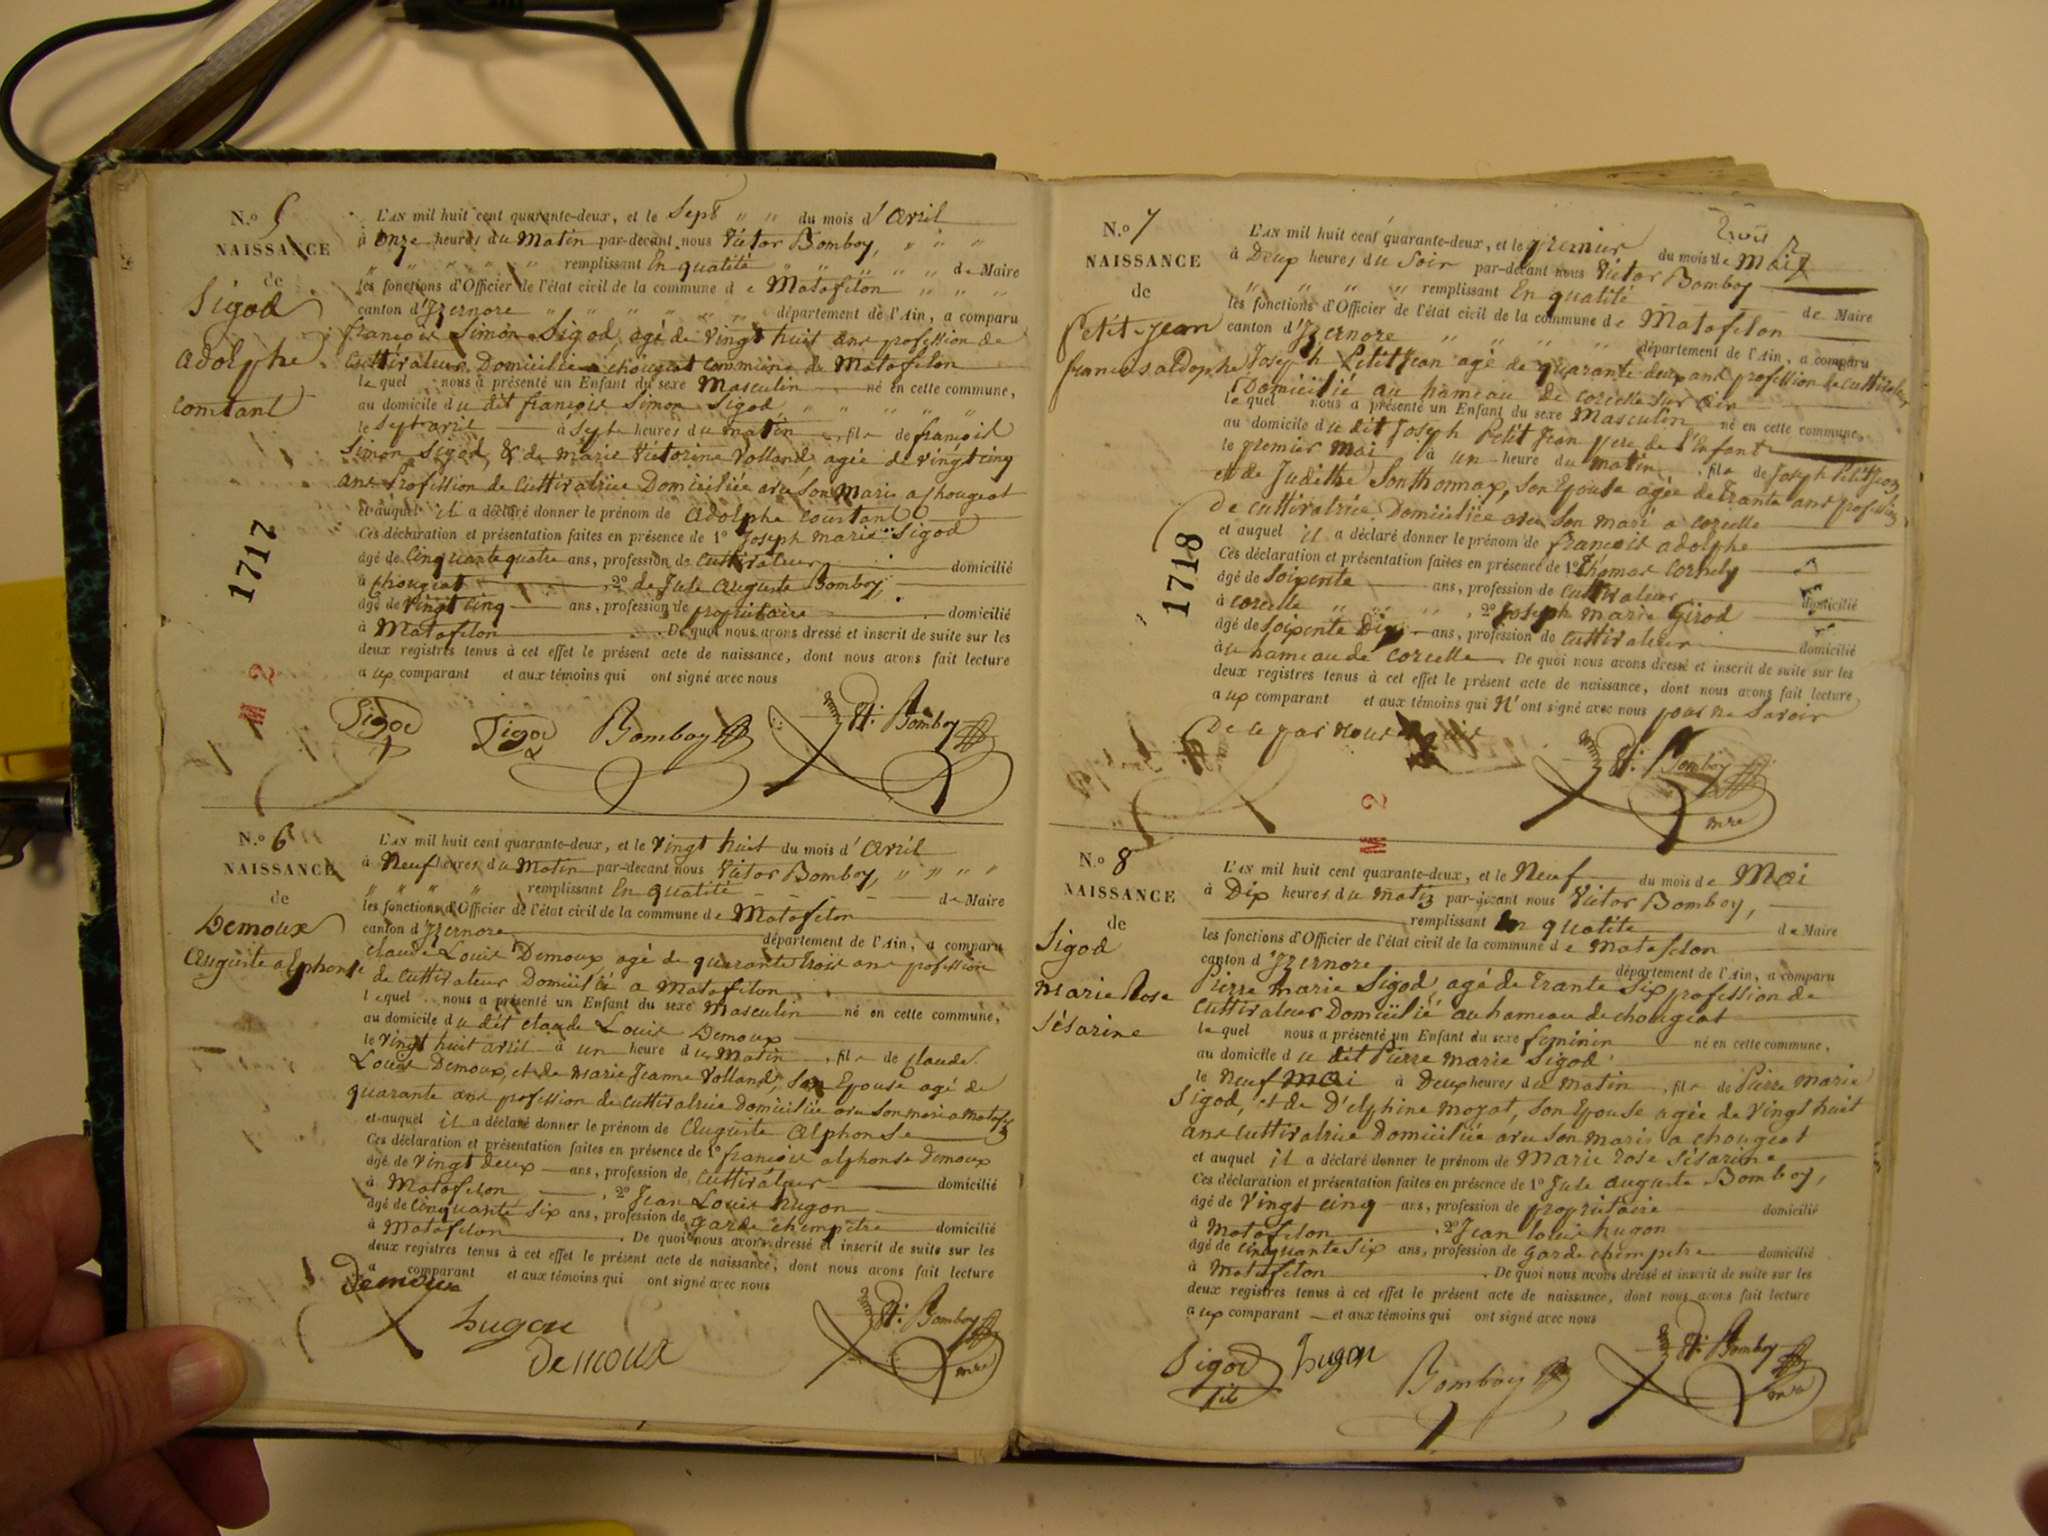 N.o 5
NAISSANCE
de
Sigod
adolphe
constant
L'AN mil huit cent quarante-deux, et le Sept " " du mois d'avril
à onze heures du Matin par-devant nous Victor Bomboy, " " "
" " " " " remplissant En qualité " " " " " de Maire
les fonctions d'Officier de l'état civil de la commune de Matafelon " " "
canton d'Izernore " " " " " " département de l'Ain, a comparu
françois Simon Sigod, agé de vingt huit ans profession de
cultivateur Domicilié a chougeat commune de Matafelon
lequel nous a présenté un Enfant du sexe Masculin né en cette commune,
au domicile du dit françois Simon Sigod " " " " "
le Sept avril à Septe heures du matin, fils de françois
Simon Sigod, & de marie Victorine Volland, agée de vingt cinq
ans Profession de Cultivatrice Domiciliée avec son maris a chougeat
et auquel il a déclaré donner le prénom de adolphe constant
Ces déclaration et présentation faites en présence de 1o Joseph marie Sigod
âgé de Cinquante quatre ans, profession de Cultivateur domicilié
à chougeat, 2o de Jule auguste Bomboy,
âgé de vingt cinq ans, profession de propriétaire domicilié
à Matafelon. De quoi nous avons dressé et inscrit de suite sur les
deux registres tenus à cet effet le présent acte de naissance, dont nous avons fait lecture
aux comparant et aux témoins qui ont signé avec nous
Sigod Sigod Bomboy Vt. Bomboy
1717
M 2
N.o 6
NAISSANCE
de
Demoux
Auguste alphonse
L'AN mil huit cent quarante-deux, et le vingt huit du mois d'avril
à Neuf heures du Matin par-devant nous Victor Bomboy, " " " "
" " " " remplissant En qualité de Maire
les fonctions d'Officier de l'état civil de la commune de Matafelon
canton d'Izernore département de l'Ain, a comparu
claude Louis Demoux agé de quarante trois ans profession
de cultivateur Domicilié a Matafelon
lequel nous a présenté un Enfant du sexe Masculin né en cette commune,
au domicile du dit claude Louis Demoux
le vingt huit avril à un heure du Matin, fils de claude
Louis Demoux, et de marie Jeanne Volland, son Epouse agé de
quarante ans profession de cultivatrice Domiciliée avec son mari a Matafn
et auquel il a déclaré donner le prénom de Auguste alphonse
Ces déclaration et présentation faites en présence de 1o françois alphonse Demoux
âgé de vingt deux ans, profession de cultivateur
à Matafelon, domicilié
2o Jean Louis hugon
âgé de cinquante six ans, profession de garde chempetre domicilié
à Matafelon. De quoi nous avons dressé et inscrit de suite sur les
deux registres tenus à cet effet le présent acte de naissance, dont nous avons fait lecture
a comparant et aux témoins qui ont signé avec nous
Demoux
hugon
Demoux
Vt. Bomboy mre
N.o 7
NAISSANCE
de
Petit-Jean
francois aldophe
L'AN mil huit cent quarante-deux, et le premier du mois de Mai
à Deux heures du Soir par-devant nous Victor Bomboy
" " " " remplissant En qualité de Maire
les fonctions d'Officier de l'état civil de la commune de Matafelon
canton d'Izernore " " " " département de l'Ain, a comparu
Joseph Petit Jean agé de quarante deux ans profession de cultivateur
Domicilié au hameau de corcelle sur ain
lequel nous a présenté un Enfant du sexe Masculin né en cette commune,
au domicile du dit Joseph Petit Jean pere de l'Enfant
le premier Mai à un heure du matin, fils de Joseph Petit Jean
et de Judithe Sonthonnax, son Epouse agée de trante ans profession
de cultivatrice Domiciliée avec son mari a corcelle
et auquel il a déclaré donner le prénom de françois adolphe
Ces déclaration et présentation faites en présence de 1o Thomas Cornely
âgé de Soixente ans, profession de cultivateur domicilié
à corcelle " " " ", 2o Joseph marie Girod
âgé de Soixente Dix ans, profession de cultivateur domicilié
à u hameau de corcelle. De quoi nous avons dressé et inscrit de suite sur les
deux registres tenus à cet effet le présent acte de naissance, dont nous avons fait lecture
aux comparant et aux témoins qui n'ont signé avec nous pour ne Savoir
De ce par nous
Vt. Bomboy mre
1718
M 2
N.o 8
NAISSANCE
de
Sigod
marie Rose
Sésarine
L'AN mil huit cent quarante-deux, et le Neuf du mois de Mai
à Dix heures du matin par-devant nous Victor Bomboy,
remplissant En qualité de Maire
les fonctions d'Officier de l'état civil de la commune de Matafelon
canton d'Izernore département de l'Ain, a comparu
Pierre marie Sigod, agé de trante Six profession de
Cultivateur Domicilié au hameau de chougeat
lequel nous a présenté un Enfant du sexe feminin né en cette commune,
au domicile du dit Pierre marie Sigod
le Neuf Mai à Deux heures du matin, fille de Pierre marie
Sigod, et de D'elphine moyat, son Epouse agée de vingt huit
ans cultivatrice Domiciliée avec son maris a chougeat
et auquel il a déclaré donner le prénom de Marie rose Sésarine
Ces déclaration et présentation faites en présence de 1o Jule auguste Bomboy,
âgé de vingt cinq ans, profession de propriétaire domicilié
à Matafelon, 2o Jean louis hugon
âgé de cinquante Six ans, profession de garde chempetre domicilié
à Matafelon. De quoi nous avons dressé et inscrit de suite sur les
deux registres tenus à cet effet le présent acte de naissance, dont nous avons fait lecture
aux comparant et aux témoins qui ont signé avec nous
Sigod hugon Bomboy Vt. Bomboy mre